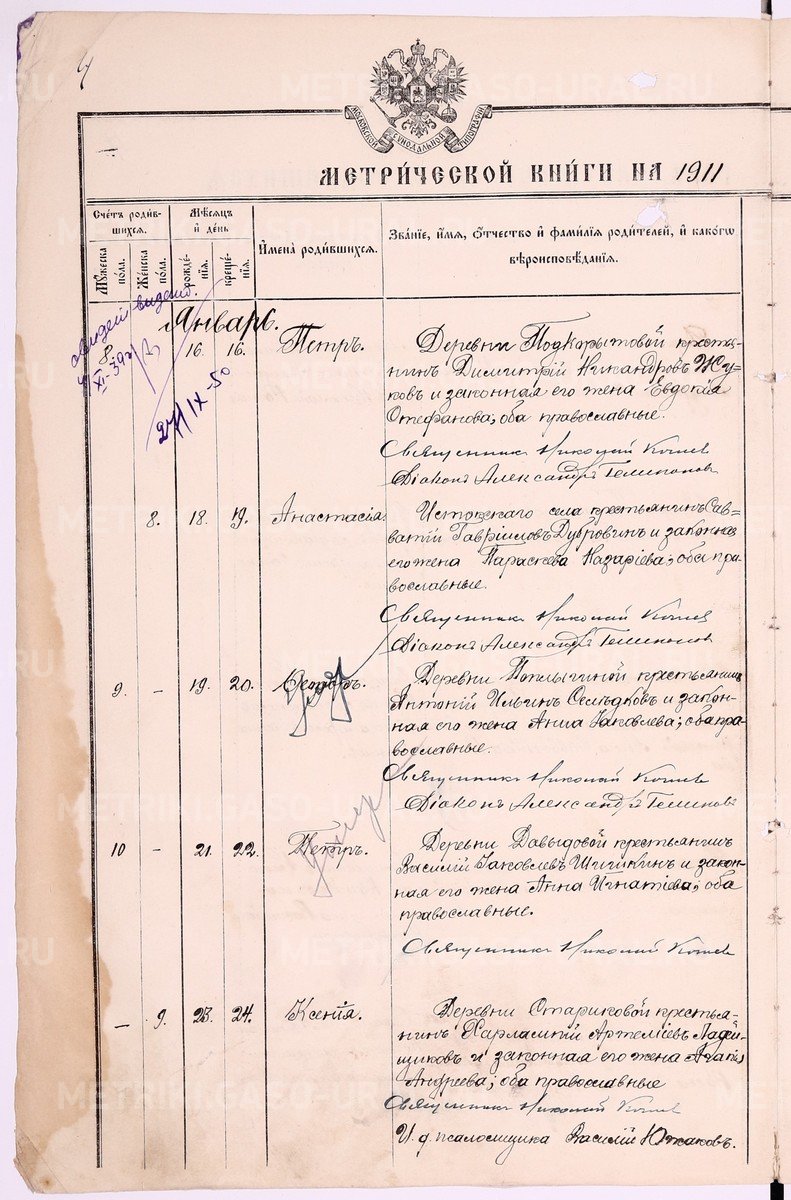 4
МОСКОВСКОЙ СѴНОДАЛЬНОЙ ТИПОГРАФІИ
МЕТРИ́ЧЕСКОЙ КНИ́ГИ НА 1911
Сче́тъ роди́вшихся.
Мѣ́сяцъ и́ де́нь
Му́жеска по́ла.
Же́нска по́ла.
рожде́нія.
креще́нія.
И́мена̀ роди́вшихся.
Зва́ніе, и́мя, ѻ҆́тчество и҆ фами́лія роди́телей, и҆ како́гѡ вѣроисповѣ́данія.
Январь.
27/IX-50
8. 16. 16. Петръ.
Деревни Подкорытовой крестья-
нинъ Димитрій Никандровъ Жу-
ковъ и законная его жена Евдокія
Стефанова; оба православные.
Священникъ Николай
Діаконъ Александръ
8. 18. 19. Анастасія.
Истокскаго села крестьянинъ Сав-
ватій Гавріиловъ Дубровинъ и законная
его жена Параскева Назаріева; оба пра-
вославные.
Священникъ Николай
Діаконъ Александръ
9. - 19. 20.
Деревни крестьянинъ
Антоній Ильинъ Селѣдковъ и закон-
ная его жена Анна Іаковлева; оба пра-
вославные.
Священникъ Николай
Діаконъ Александръ
10 - 21. 22. Петръ.
Деревни Давыдовой крестьянинъ
Василій Іаковлевъ Шишкинъ и закон-
ная его жена Анна Игнатіева; оба
православные.
Священникъ Николай
- 9. 23. 24. Ксенія.
Деревни Стариковой крестья-
нинъ Харлампій Артеміевъ Ладей-
щиковъ и законная его жена
Андреева; оба православные
Священникъ Николай
И. д. псаломщика Василій Южаковъ.